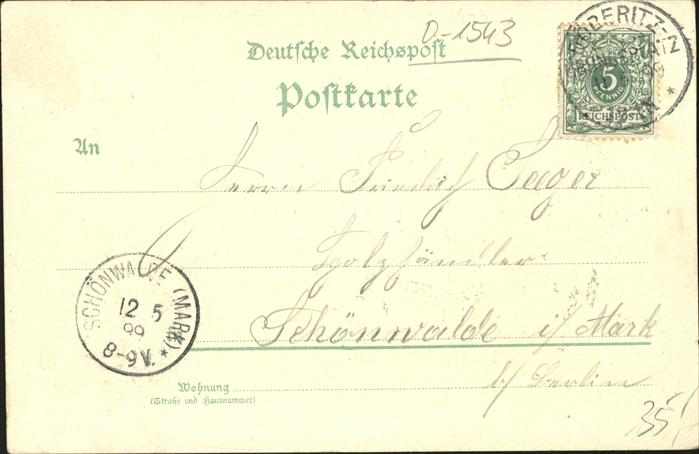 D-1543
Deutsche Reichspost
Postkarte
5
PFENNIG
REICHSPOST
An
Herrn Friedrich Jaeger
Holzhändler
Schönwalde i/ Mark
b/ Berlin
SCHÖNWALDE (MARK) *
12 5
99
8-9V.
Wohnung
(Straße und Hausnummer)
35